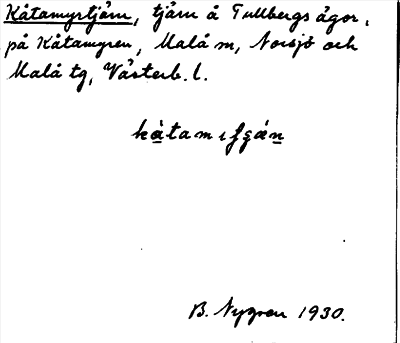 Kåtamyrtjärn, tjärn å Tullbergs ägor,
på Kåtamyren, Malå m, Norsjö och
Malå tg, Västerb. l.
B. Nygren 1930.